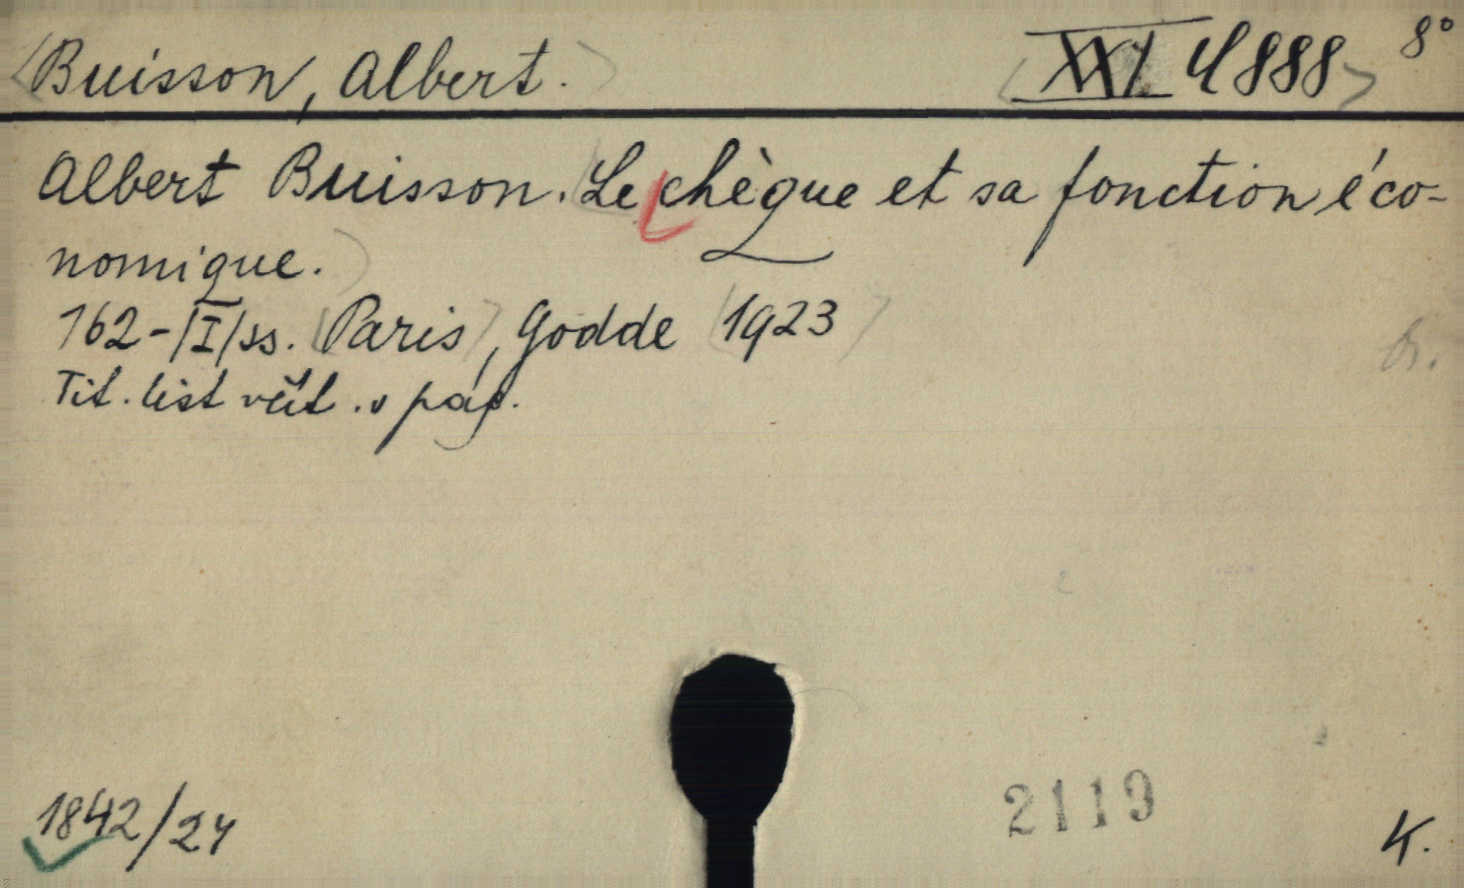 Buisson, Albert. XXI 4888 8°
Albert Buisson. Le chèque et sa fonction éco-
nomique.
162-/I/ss. (Paris), Godde (1923)
Tit. list
1842/24
2119
K.